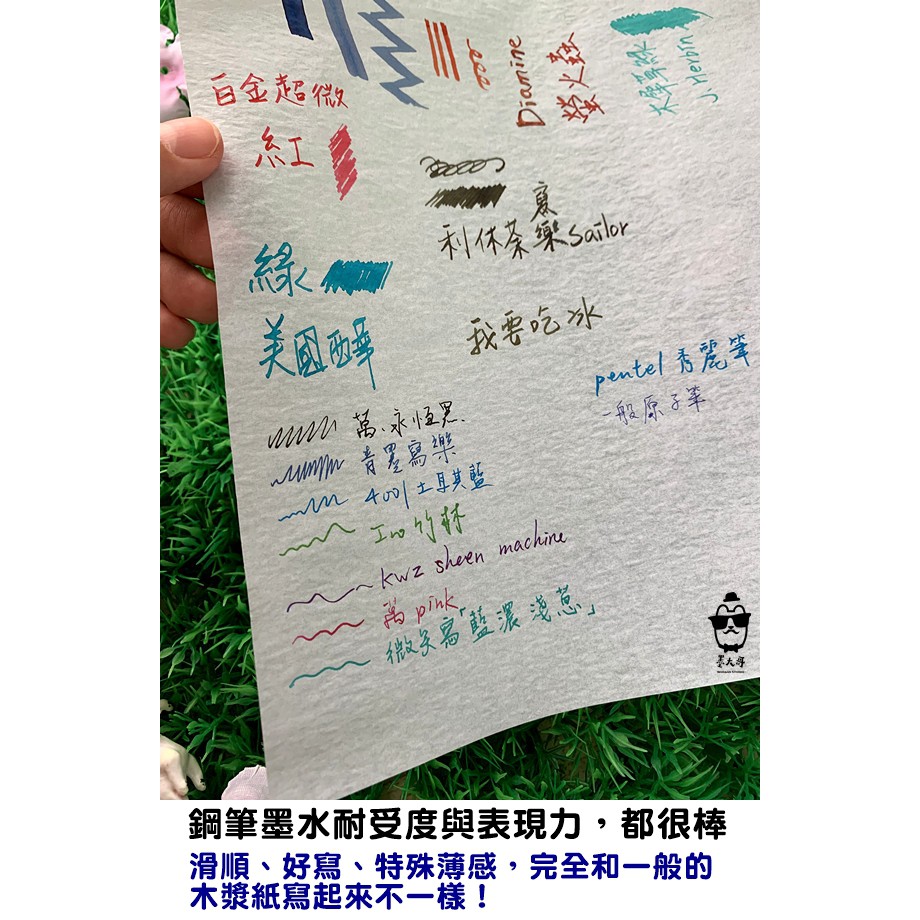 白金超微
紅
Diamine
螢火蟲
大溪地綠
J. Herbin
綠
美國西華
利休茶 寫樂 Sailor
我要吃冰
pentel 秀麗筆
一般原子筆
萬.永恒黑.
青墨寫樂
4001 土耳其藍
Iro 竹林
kwz sheen machine
萬 pink
微笑寫「藍濃淺蔥」
墨大哥
鋼筆墨水耐受度與表現力，都很棒
滑順、好寫、特殊薄感，完全和一般的
木漿紙寫起來不一樣！